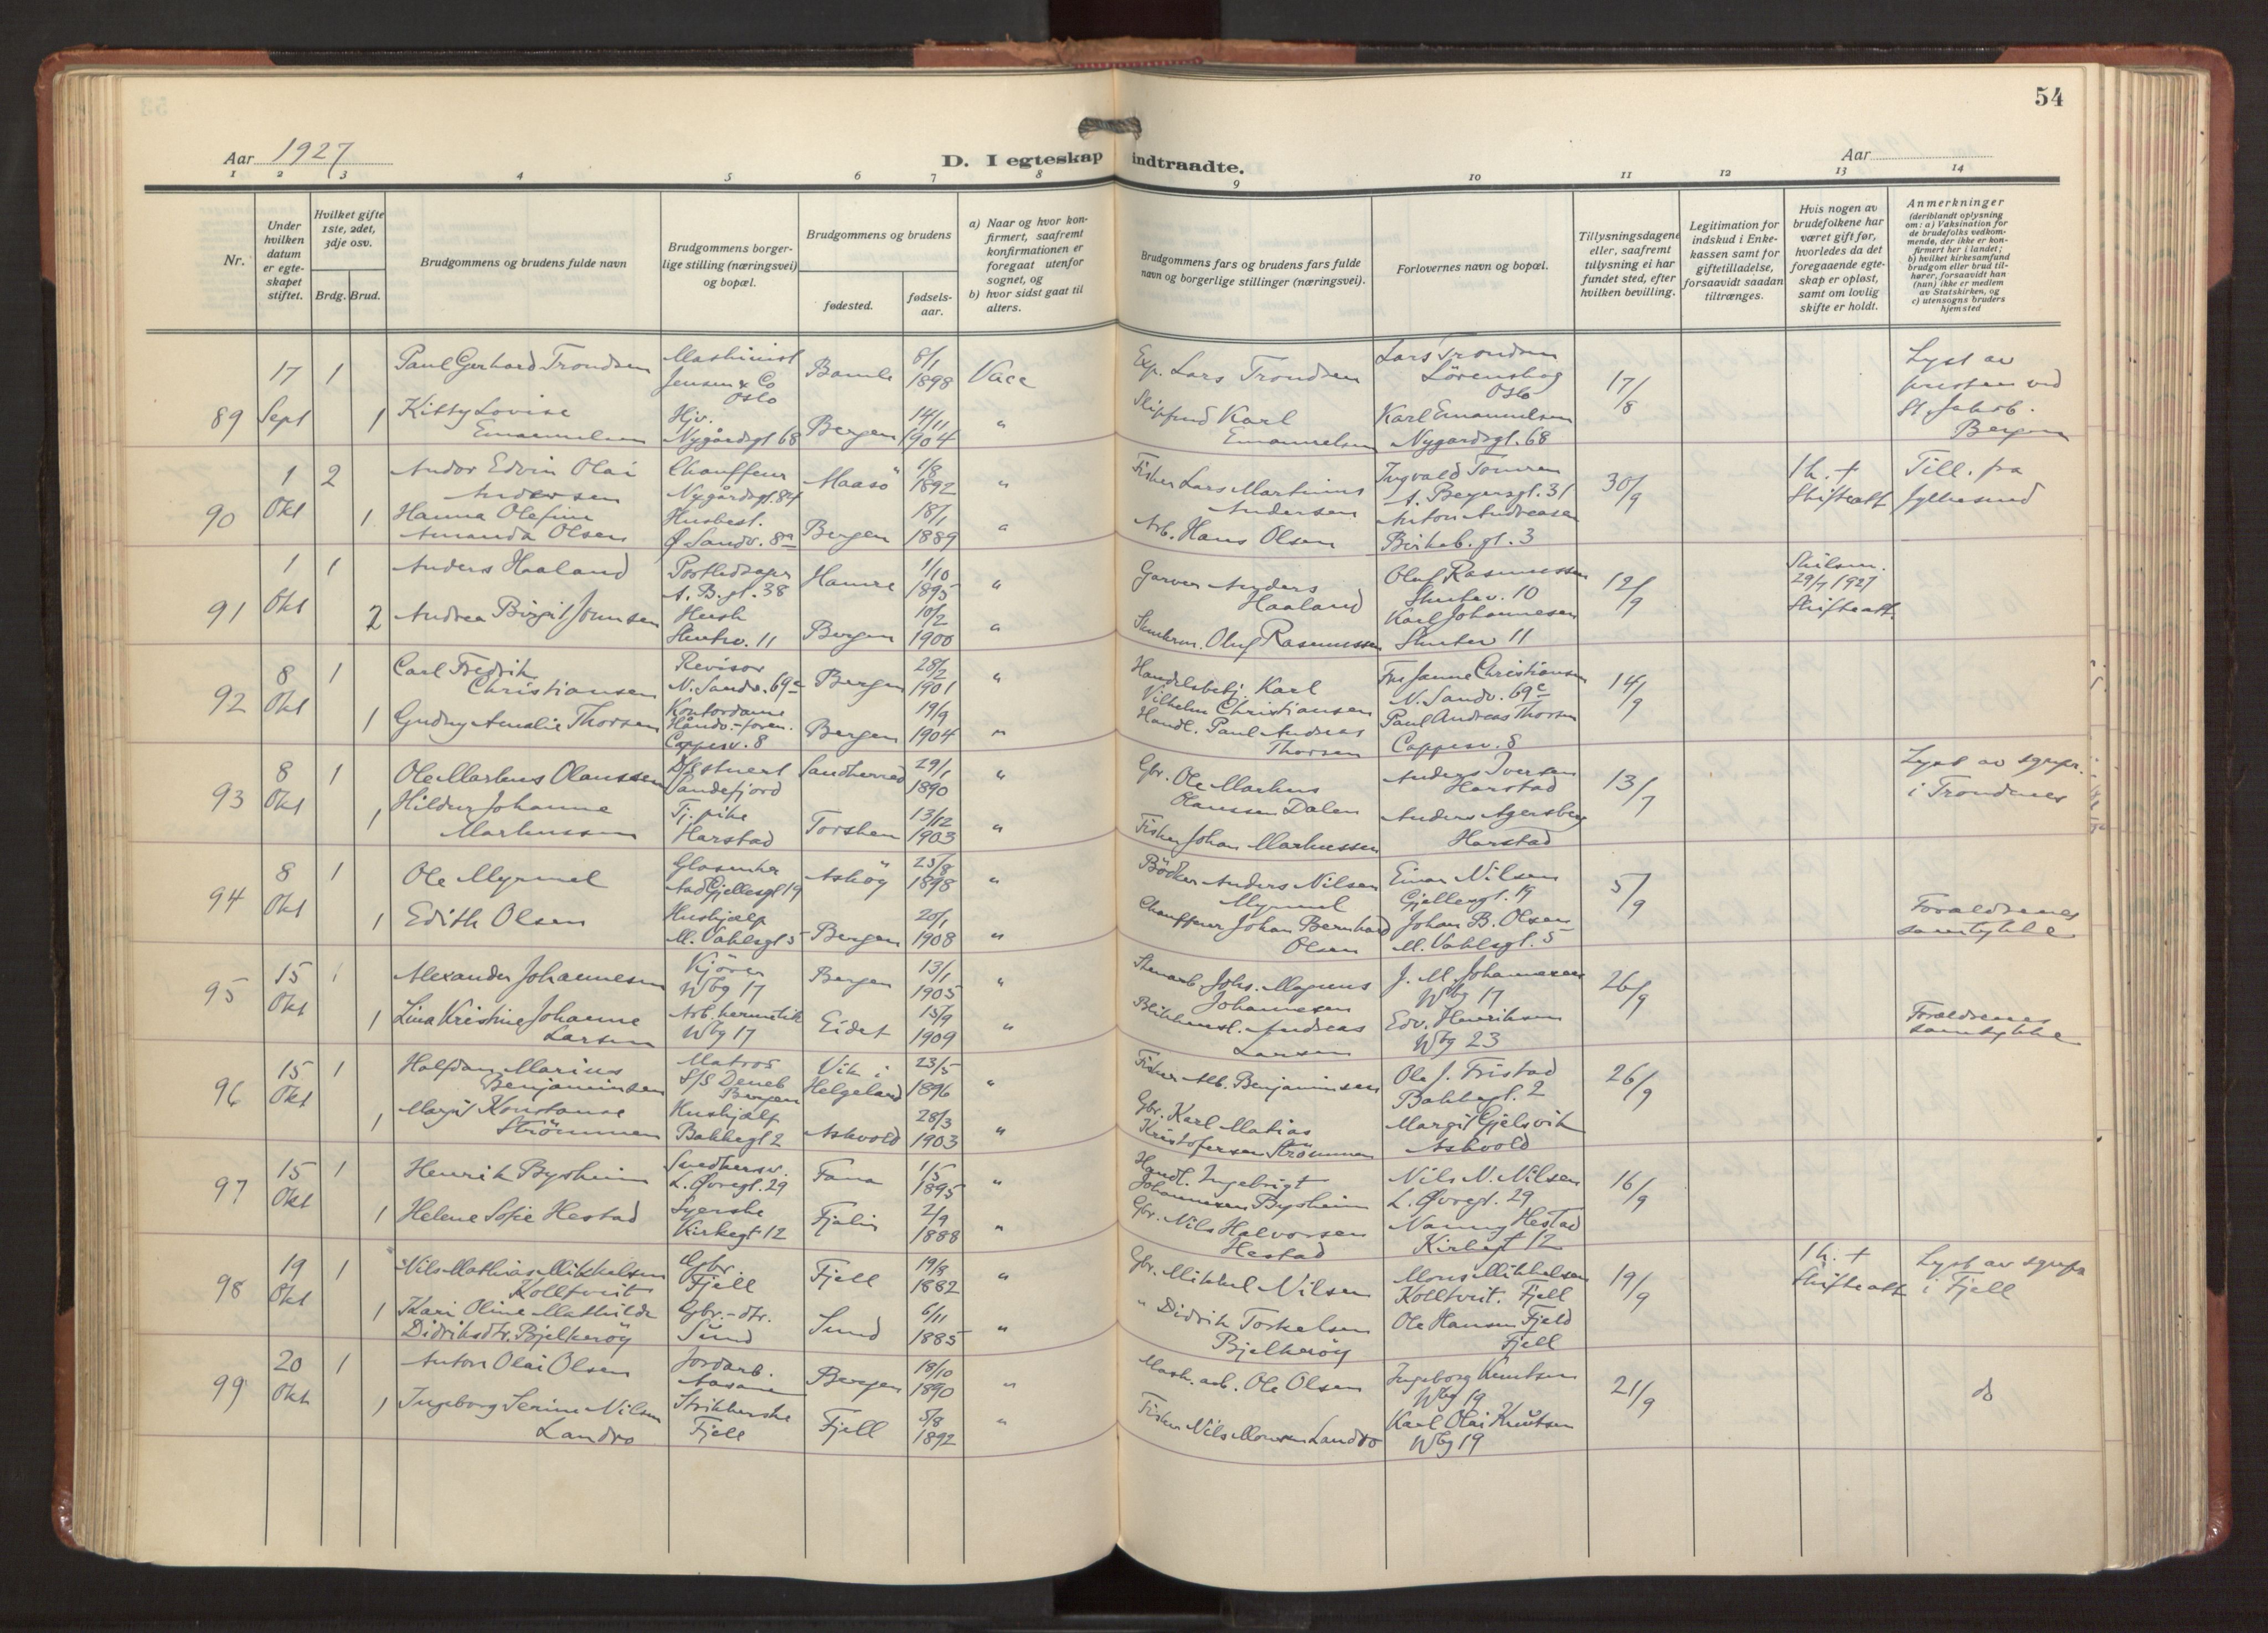 54
Aar 1927
D. I egteskap indtraadte.
Aar
1 2 3 4 5 6 7 8 9 10 11 12 13 14
Nr.
Under hvilken datum er egte-skapet stiftet.
Hvilket gifte 1ste, 2det, 3dje osv.
Brdg. Brud.
Brudgommens og brudens fulde navn
Brudgommens borger-lige stilling (næringsvei) og bopæl.
Brudgommens og brudens
fødested.
fødsels-aar.
a) Naar og hvor kon-firmert, saafremt konfirmationen er foregaat utenfor sognet, og
b) hvor sidst gaat til alters.
Brudgommens fars og brudens fars fulde navn og borgerlige stillinger (næringsvei).
Forlovernes navn og bopæl.
Tillysningsdagene eller, saafremt tillysning ei har fundet sted, efter hvilken bevilling.
Legitimation for indskud i Enke-kassen samt for giftetilladelse, forsaavidt saadan tiltrænges.
Hvis nogen av brudefolkene har været gift før, hvorledes da det foregaaende egte-skap er opløst, samt om lovlig skifte er holdt.
Anmerkninger
(deriblandt oplysning om: a) Vaksination for de brudefolks vedkom-mende, der ikke er kon-firmert her i landet; b) hvilket kirkesamfund brudgom eller brud til-hører, forsaavidt han (hun) ikke er medlem av Statskirken, og c) utensogns bruders hjemsted
89
17 Sept
1
Paul Gerhard Trondsen
Maskinist Jensen & Co Oslo
Bamle
8/1 1898
Vacc
Exp. Lars Trondsen
Lars Trondsen Lörenskog Oslo
17/8
Lyst av presten ved St. Jakob. Bergen
1
Kitty Lovise Emanuelsen
Hjv. Nygårdsgt 68
Bergen
14/11 1904
"
Karl Emanuelsen
Karl Emanuelsen Nygardsgt. 68
90
1 Okt
2
Andor Edvin Olai Andersen
Chauffeur Nygårdsgt. 84
Maasö
1/8 1892
"
Fisker Lars Martinius Andersen
Ingvald Tomren A. Beyersgt. 31
30/9
1 h. + Skifteatt
Till. fra
1
Hanna Olefine Amanda Olsen
Husbest. Ø. Sandv. 8a
Bergen
18/1 1889
"
Arb. Hans Olsen
Anton Andreasen Birkeb. gt. 3
91
1 Okt
1
Anders Haaland
Postledsager A. B. gt. 38
Hamre
1/10 1895
"
Garver Anders Haaland
Oluf Rasmussen Skutev. 10
12/9
Skilsm. 29/7 1927 Skifteatt.
2
Andrea Birgit Jonnsen
Hush Skutev. 11
Bergen
10/2 1900
"
Oluf Rasmussen
Karl Johannesen Skutev 11
92
8 Okt
1
Carl Fredrik Christiansen
Revisor N. Sandv. 69c
Bergen
28/2 1901
"
Handelsbetj. Karl Vilhelm Christiansen
Fru Janna Christiansen N. Sandv. 69c
14/9
1
Gudny Amalie Thorsen
Kontordame Håndv.-foren. Cappesv. 8
Bergen
19/9 1904
"
Handl. Paul Andreas Thorsen
Paul Andreas Thorsen Cappesv. 8
93
8 Okt
1
Ole Markus Olaussen
D/S stuert Sandefjord
Sandherred
29/1 1890
"
Gbr. Ole Markus Olaussen Dalen
Anders Iversen Harstad
13/7
Lyst av sgnpr. i Trondenes
1
Hildur Johanne Markussen
Tj. pike Harstad
Torsken
13/12 1903
"
Fisker Johan Markussen
Anders Agersberg Harstad
94
8 Okt
1
Ole Myrmel
Aad Gjellesgt 19
Askøy
23/8 1898
"
Bödker Anders Nilsen Myrmel
Einar Nilsen Gjellesgt. 19
5/9
1
Edith Olsen
Hushjælp M. Vahlsgt 5
Bergen
20/1 1908
"
Chauffeur Johan Bernhard Olsen
Johan B. Olsen M. Vahlsgt. 5
Forældrenes samtykke
95
15 Okt
1
Alexander Johannesen
Kjörer Wbg 17
Bergen
13/1 1905
"
Stenarb Johs. Magnus Johannesen
J. M. Johannesen Wbg 17
26/9
1
Lina Kristine Johanne Larsen
Arb. hermetik Wbg 17
Eidet
15/9 1909
"
Blikkensl. Andreas Larsen
Edv. Henriksen Wbg 23
Forældrenes samtykke
96
15 Okt
1
Halfdan Marius Benjaminsen
Matros S/S Deneb Bergen
Vik i Helgeland
23/5 1896
"
Fisker Alb. Benjaminsen
Ole J. Fristad Bakkegt. 2
26/9
1
Margit Konstanse Strömmen
Hushjælp Bakkegt 2
Askvold
28/3 1903
"
Gbr. Karl Matias Kristofersen Strömmen
Margit Gjelsvik Askvold
97
15 Okt
1
Henrik Bysheim
Smedhersv. L. Øvregt. 29
Fana
1/5 1895
"
Handl. Ingebrigt Johannesen Bysheim
Nils N. Nilsen L. Øvregt. 29
16/9
1
Helene Sofie Hestad
Syerske Kirkegt 12
Fjaler
2/9 1888
"
Gbr. Nils Halvorsen Hestad
Nanny Hestad Kirkegt 12
98
19 Okt
1
Nils Mathias Mikkelsen Kolltveit
Gbr. Fjell
Fjell
19/8 1882
"
Gbr. Mikkel Nilsen
Mons Mikkelsen Kolltveit. Fjell
19/9
1 h. + Skifteatt
Lyst av sgnpr i Fjell
1
Kari Oline Mathilde Didriksdtr. Bjelkeröy
Gbr.-dtr. Sund
Sund
6/11 1885
"
" Didrik Torkelsen Bjelkeröy
Ole Hansen Fjeld Fjell
99
20 Okt
1
Anton Olai Olsen
Jordarb. Aasane
Bergen
18/10 1890
"
Mask. arb. Ole Olsen
Ingeborg Knutsen Wbg 19
21/9
do
1
Ingeborg Serine Nilsen Landro
Strikkerske Fjell
Fjell
5/8 1892
"
Fisker Nils Monsen Landro
Karl Olai Knutsen Wbg 19